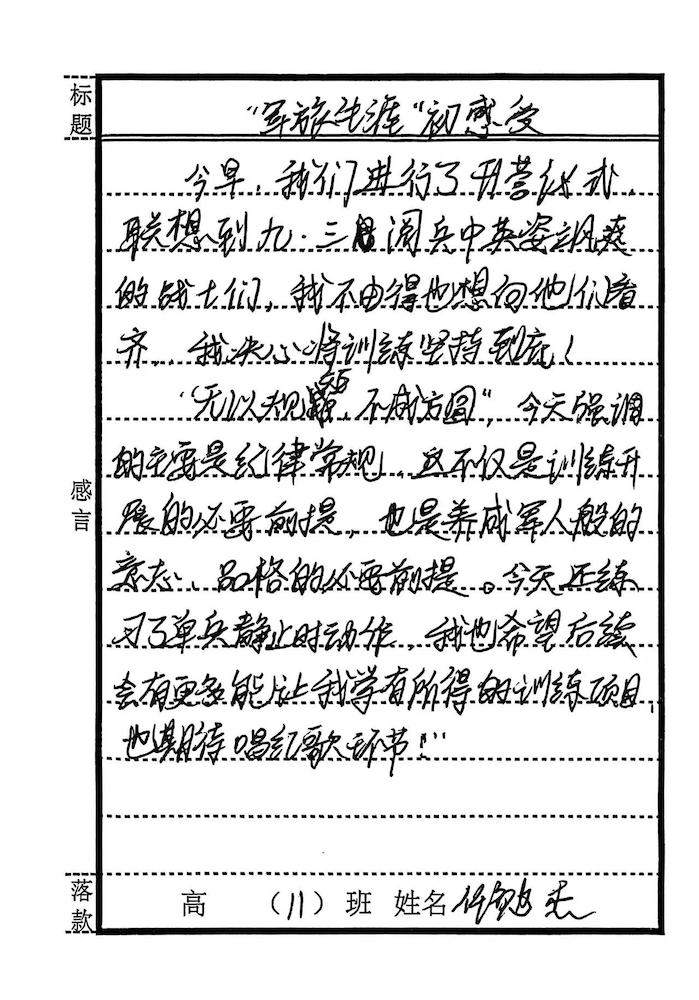 标题
"军旅生涯"初感受
今早，我们进行了开营仪式，
联想到九·三阅兵中英姿飒爽
的战士们，我不由得也想向他们看
齐，我决心将训练坚持到底！
"无以规矩，不成方圆"，今天强调
的主要是纪律常规，这不仅是训练开
展的必要前提，也是养成军人般的
意志、品格的必要前提。今天还练
习了单兵静止时动作，我也希望后续
会有更多能让我学有所得的训练项目，
也期待唱红歌环节！
感言
落款
高 （11）班 姓名 任